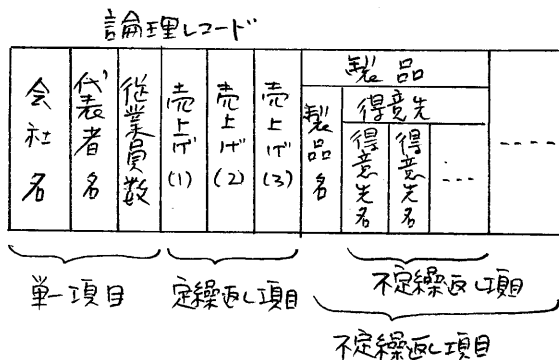 論理レコード
会社名
代表者名
従業員数
売上げ(1)
売上げ(2)
売上げ(3)
製品
製品名
得意先
得意先名
得意先名
...
....
単一項目
定繰返し項目
不定繰返し項目
不定繰返し項目